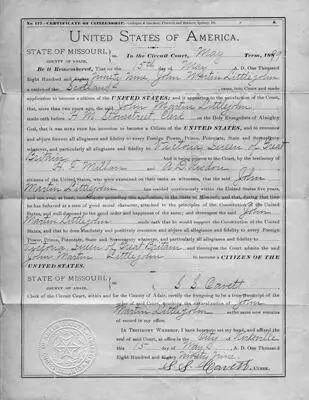 No. 177.—CERTIFICATE OF CITIZENSHIP.
UNITED STATES OF AMERICA.
STATE OF MISSOURI, ss. In the Circuit Court, May Term, 18
COUNTY OF ADAIR.
Be it Remembered, That on the 15th day of May A. D. One Thousand
Eight Hundred and Ninety Nine John Martin Littlejohn
a native of Scotland came into Court and made
application to become a citizen of the UNITED STATES; and it appearing to the satisfaction of the Court,
that, more than two years ago, the said John Martin Littlejohn
made oath before on the Holy Evangelists of Almighty
God, that it was then even his intention to become a Citizen of the UNITED STATES, and to renounce
and abjure forever all allegiance and fidelity to every Foreign Power, Prince, Potentate, State and Sovereignty
whatever, and particularly all allegiance and fidelity to Victoria Queen of Great
Britain And it being proven to the Court, by the testimony
of and
citizens of the United States, who were examined on their oaths as witnesses, that the said John
Martin Littlejohn has resided continuously within the United States five years,
and one year, at least, immediately preceding this application, in the State of Missouri; and that, during that time
he has behaved as a man of good moral character, attached to the principles of the Constitution of the United
States, and well disposed to the good order and happiness of the same; and thereupon the said John
Martin Littlejohn made oath that he would support the Constitution of the United
States, and that he does absolutely and positively renounce and abjure all allegiance and fidelity to every Foreign
Power, Prince, Potentate, State and Sovereignty whatever, particularly all allegiance and fidelity to
Victoria Queen of Great Britain and thereupon the Court admits the said
John Martin Littlejohn to become a CITIZEN OF THE
UNITED STATES.
STATE OF MISSOURI, ss. I, S. S. Cavett
COUNTY OF ADAIR.
Clerk of the Circuit Court, within and for the County of Adair, certify the foregoing to be a true transcript of the
order of said Court, granting the naturalization of John
Martin Littlejohn as the same now remains
of record in my office.
IN TESTIMONY WHEREOF, I have hereunto set my hand, and affixed the
seal of said Court, at office in the City of Kirksville
this 15 day of May A. D. One Thousand
Eight Hundred and Eighty Ninety Nine.
S. S. Cavett, CLERK.